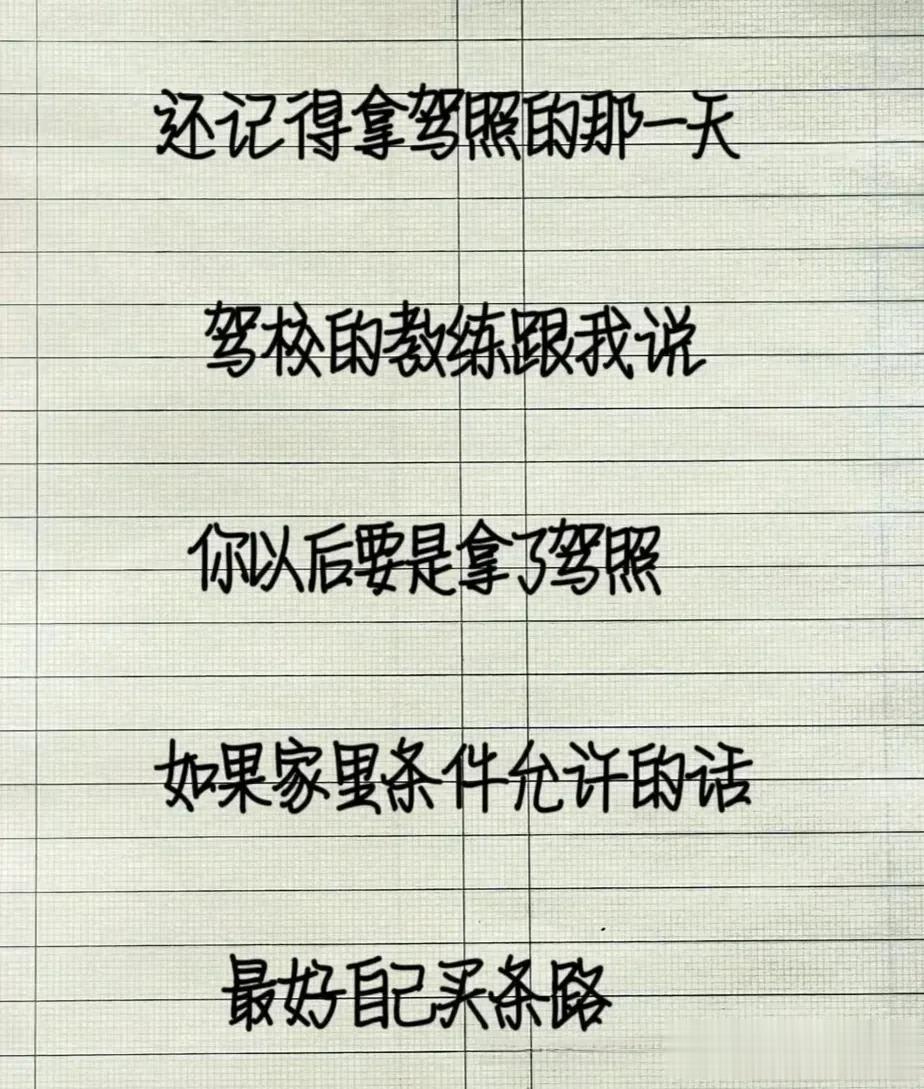 还记得拿驾照的那一天
驾校的教练跟我说
你以后要是拿了驾照
如果家里条件允许的话
最好自己买条路